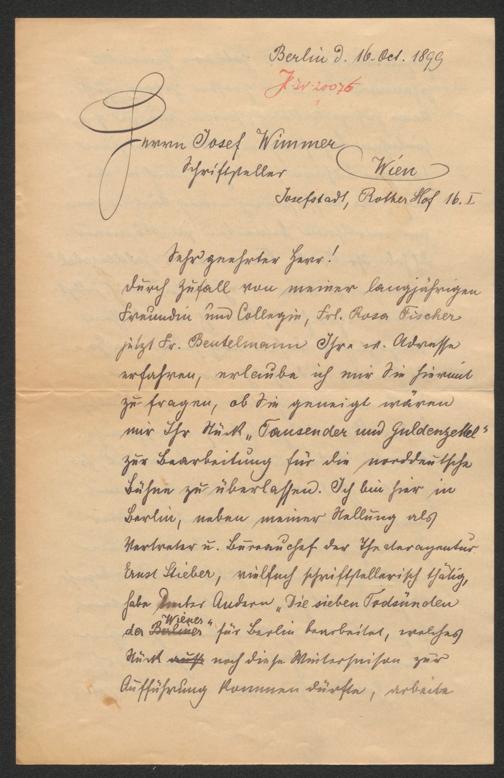 Berlin d. 16. Oct. 1899
J.N. 20076
Herrn Josef Wimmer
Schriftsteller
Wien
Josefstadt, Rother Hof 16. I
Sehr geehrter Herr!
Durch Zufall von meiner langjährigen
Freundin und Collegin, Frl. Rosa Fischer
jetzt Fr. Beutelmann Ihre w. Adresse
erfahren, erlaube ich mir Sie hiermit
zu fragen, ob Sie geneigt wären
mir Ihr Stück „Tausender und Guldenzettel"
zur Bearbeitung für die norddeutsche
Bühne zu überlassen. Ich bin hier in
Berlin, neben meiner Stellung als
Vertreter u. Büreauchef der Theateragentur
Ernst Stieber, vielfach schriftstellerisch thätig,
habe Unter Andern „Die sieben Todsünden
der Berliner Wiener" für Berlin bearbeitet, welches
Stück auch noch diese Wintersaison zur
Aufführung kommen dürfte, arbeite